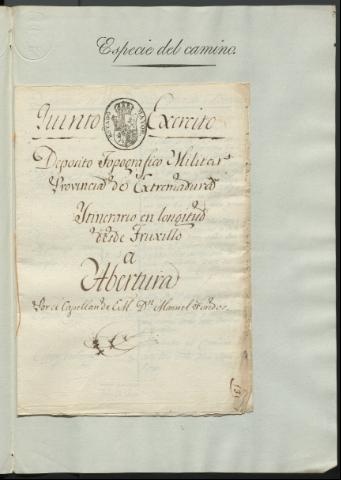 Especie del camino.
Quinto Exercito
Deposito Topografico Militar
Provincia de Extremadura
Ytinerario en longitud
desde Truxillo
a
Abertura
Por el Capellan de E.M. Dn Manuel